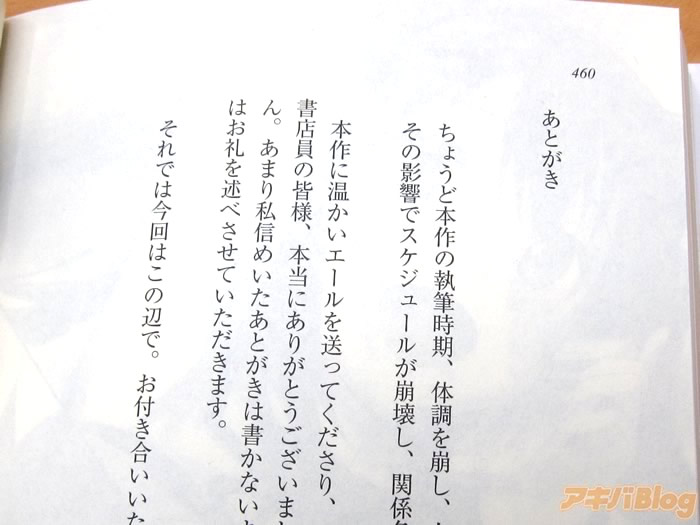 460
あとがき
ちょうど本作の執筆時期、体調を崩し、
その影響でスケジュールが崩壊し、関係
本作に温かいエールを送ってくださり、
書店員の皆様、本当にありがとうございまし
ん。あまり私信めいたあとがきは書かない
はお礼を述べさせていただきます。
それでは今回はこの辺で。お付き合いいた
アキバBlog